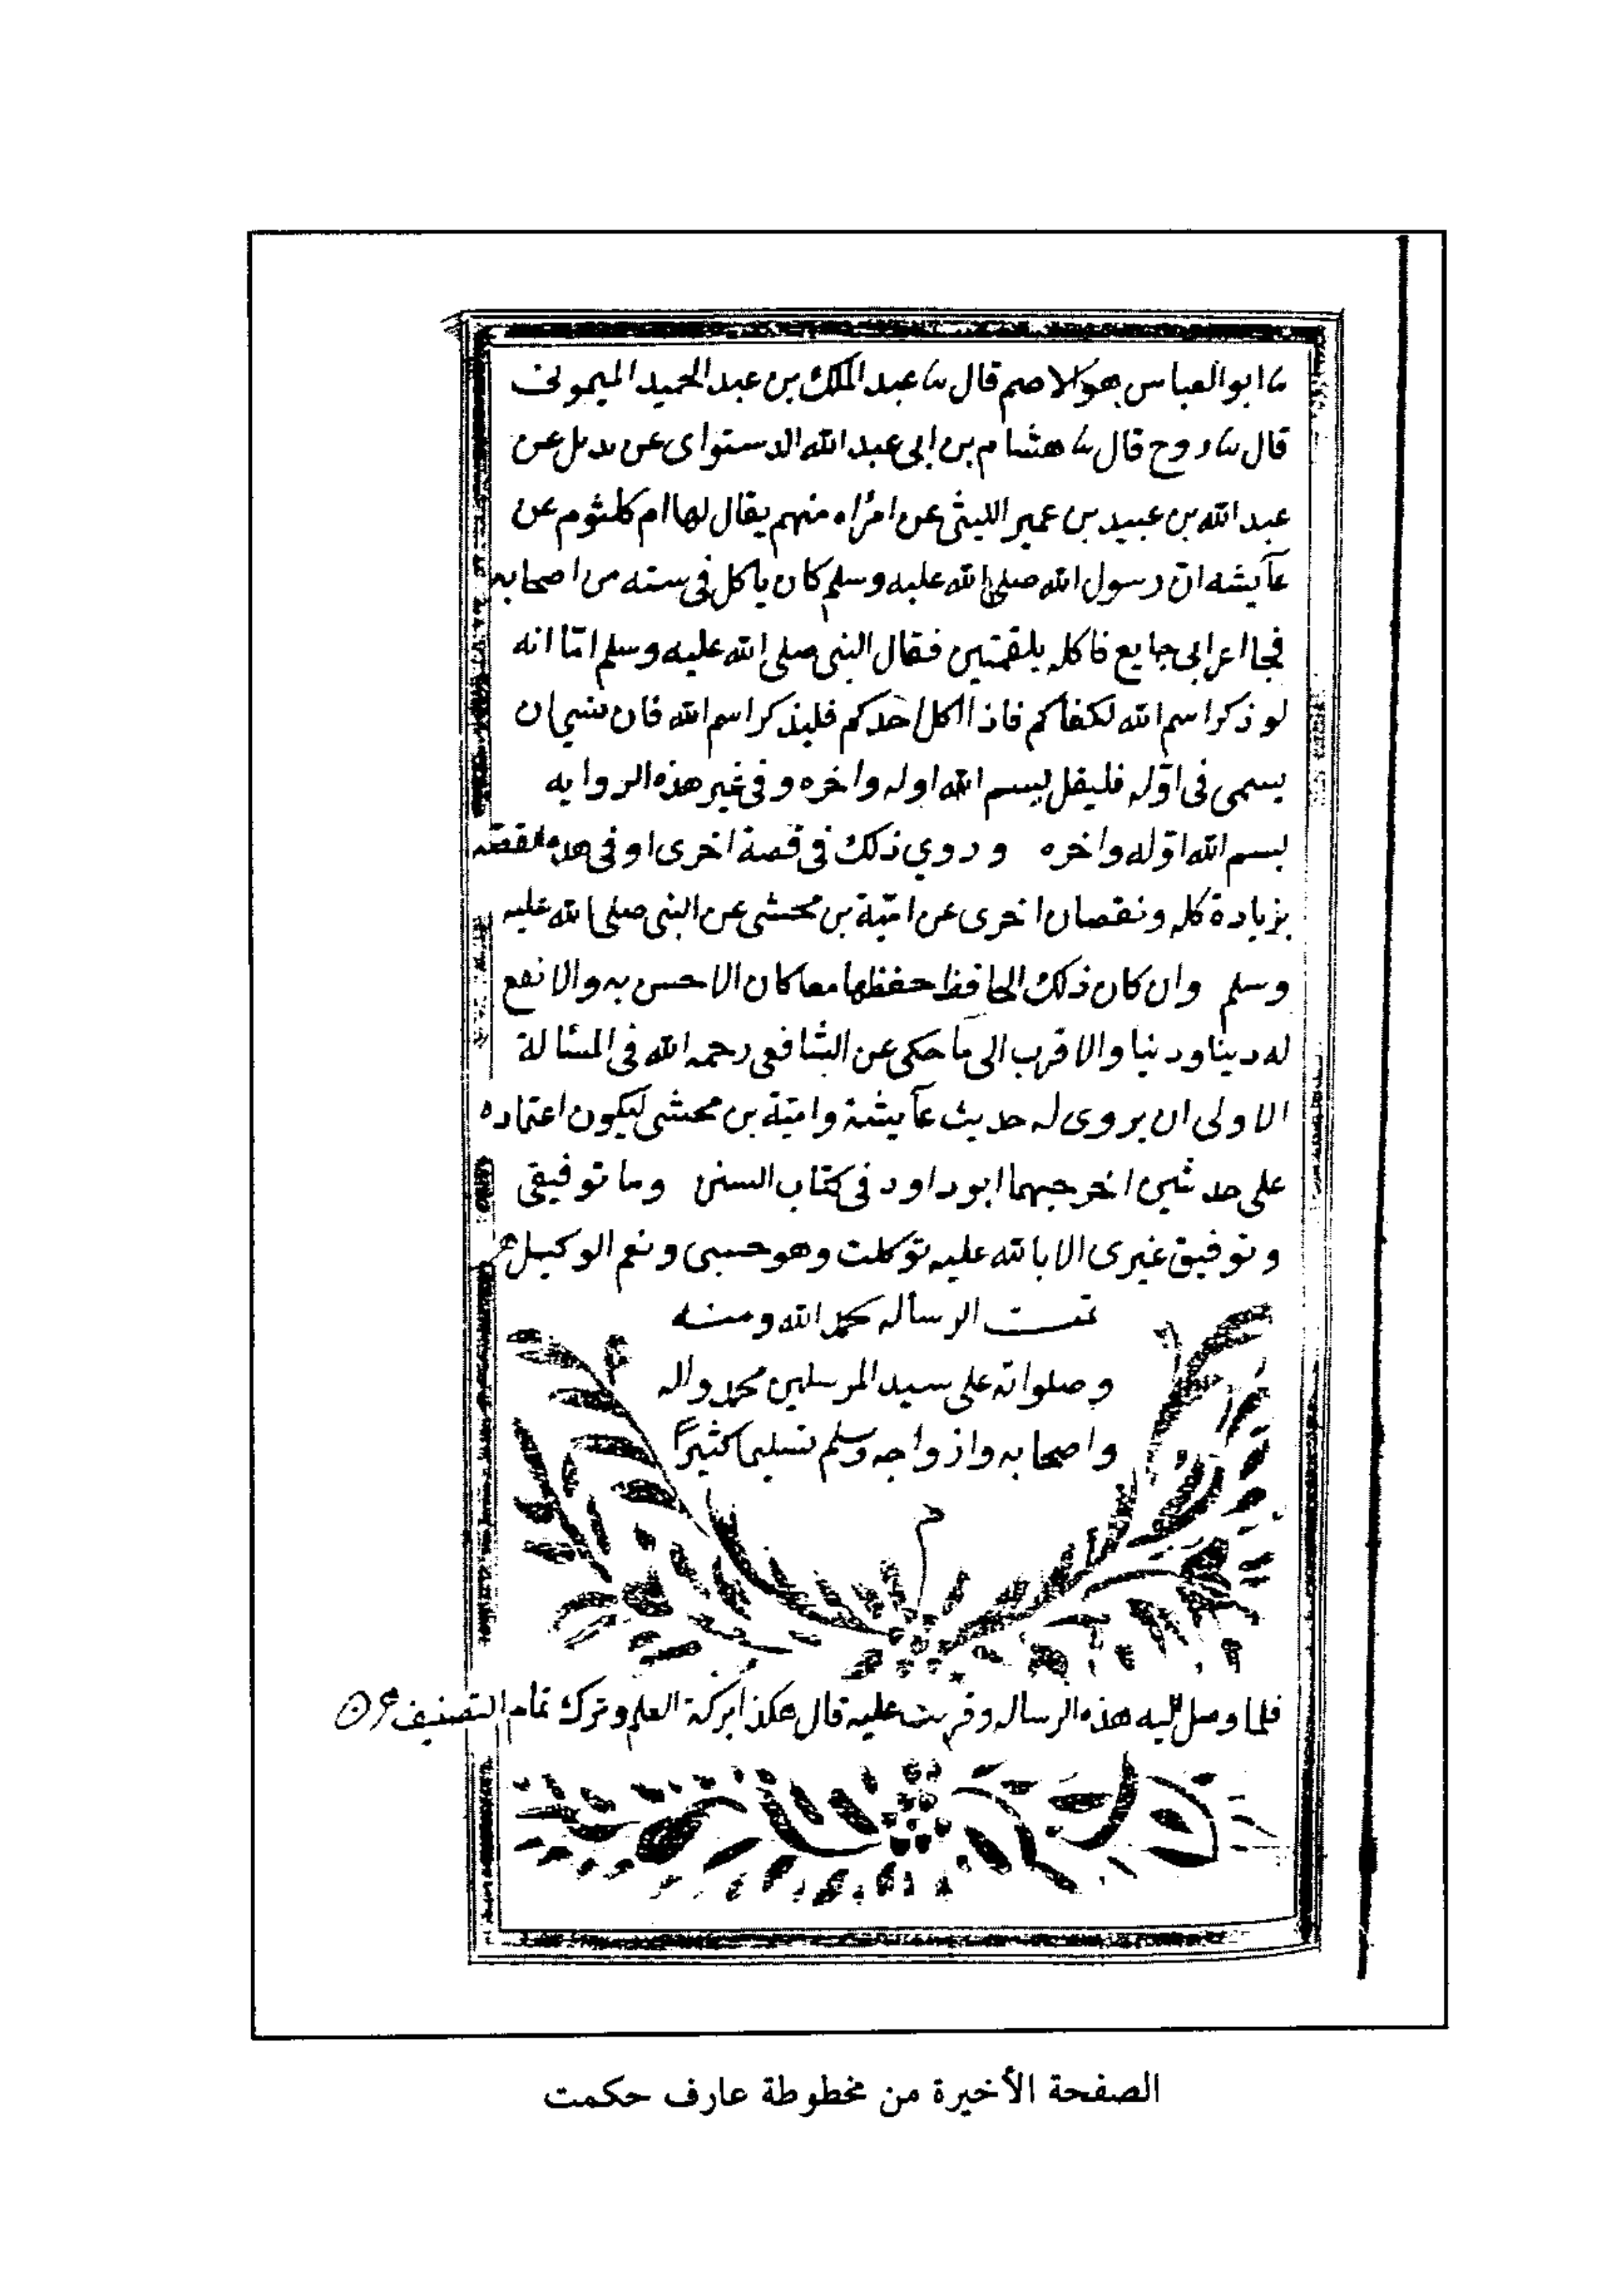 ثنا ابو العباس هو الاصم قال ثنا عبد الملك بن عبد الحميد الميموني
قال ثنا روح قال ثنا هشام بن ابي عبد الله الدستواى عن بديل عن
عبد الله بن عبيد بن عمير الليثى عن امرأه منهم يقال لها ام كلثوم عن
عآيشه انّ رسول الله صلى الله عليه وسلم كان ياكل فى سته من اصحابه
فجا اعرابى جايع فاكله بلقمتين فقال النبى صلى الله عليه وسلم امّا انه
لو ذكر اسم الله لكفاكم فاذا اكل احدكم فليذكر اسم الله فان نسي ان
يسمى فى اوّله فليقل بسم الله اوله واخره وفى غير هذه الروايه
بسم الله اوّله واخره وروي ذلك فى قصة اخرى او فى هذه القصّه
بزيادة كله ونقصان اخرى عن اميّة بن محشى عن النبى صلى الله عليه
وسلم وان كان ذلك الحافظ حفظها معا كان الاحسن به والانفع
له دينا ودنيا والاقرب الى ما حكى عن الشافعى رحمه الله فى المسالة
الاولى ان يروى له حديث عآيشة واميّة بن محشى ليكون اعتماده
على حديثين اخرجهما ابو داود فى كتاب السنن وما توفيقى
وتوفيق غيرى الا بالله عليه توكلت وهو حسبى ونعم الوكيل
تمت الرساله بحمد الله ومنه
وصلواته على سيد المرسلين محمد واله
واصحابه وازواجه وسلم تسليما كثيرًا
م
فلما وصل اليه هذه الرساله وقريت عليه قال هكذا بركة العلم وترك تمام التصنيف
الصفحة الأخيرة من مخطوطة عارف حكمت